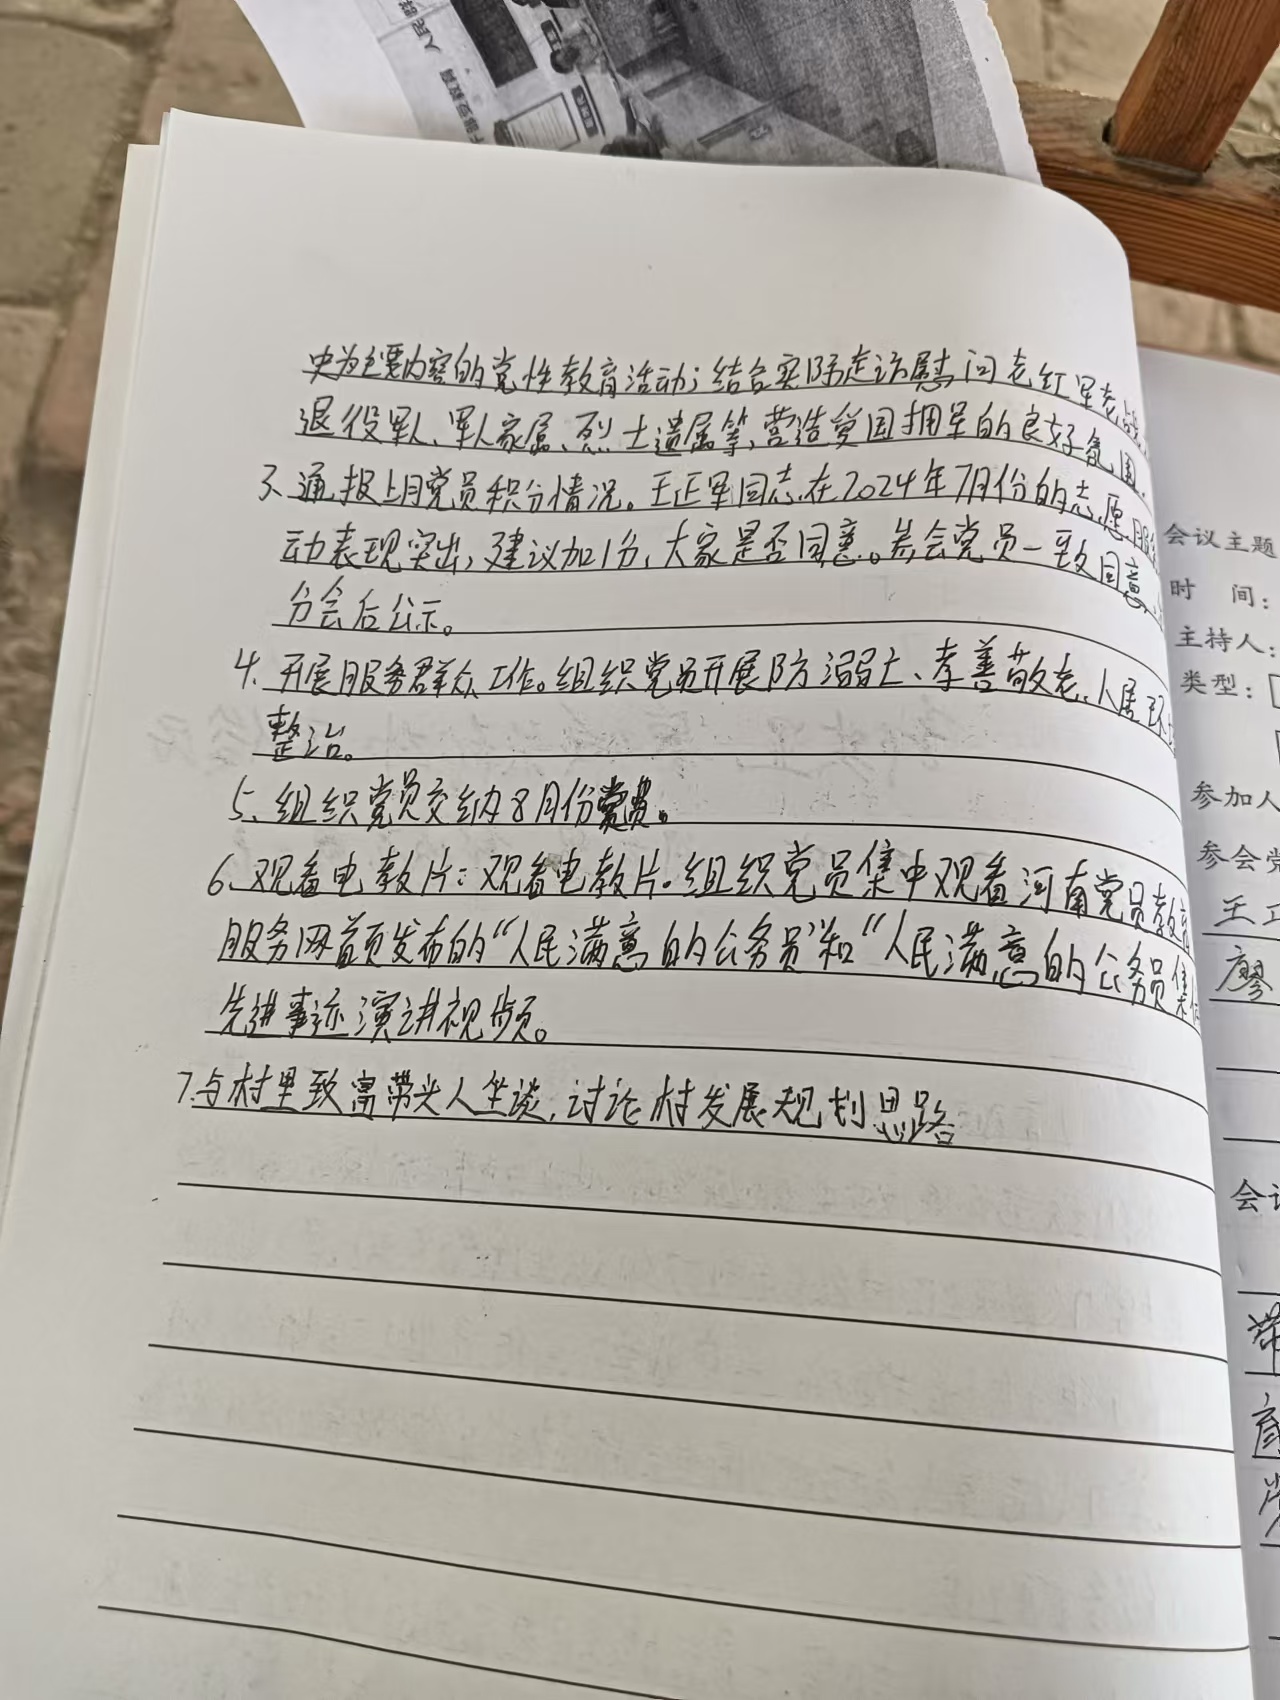 史为主要内容的党性教育活动；结合实际走访慰问老红军老战
退役军人、军人家属、烈士遗属等，营造爱国拥军的良好氛围。
3、通报上月党员积分情况。王正军同志在2024年7月份的志愿服务
动表现突出，建议加1分，大家是否同意。参会党员一致同意，
分会后公示。
4、开展服务群众工作。组织党员开展防溺亡、孝善敬老、人居环境
整治。
5、组织党员交纳8月份党费。
6、观看电教片：观看电教片。组织党员集中观看河南党员教育
服务网首页发布的“人民满意的公务员”和“人民满意的公务员集体
先进事迹演讲视频。
7、与村里致富带头人坐谈，讨论村发展规划思路
会议主题
时 间：
主持人：
类型：
参加人
参会党
王正
廖
会议